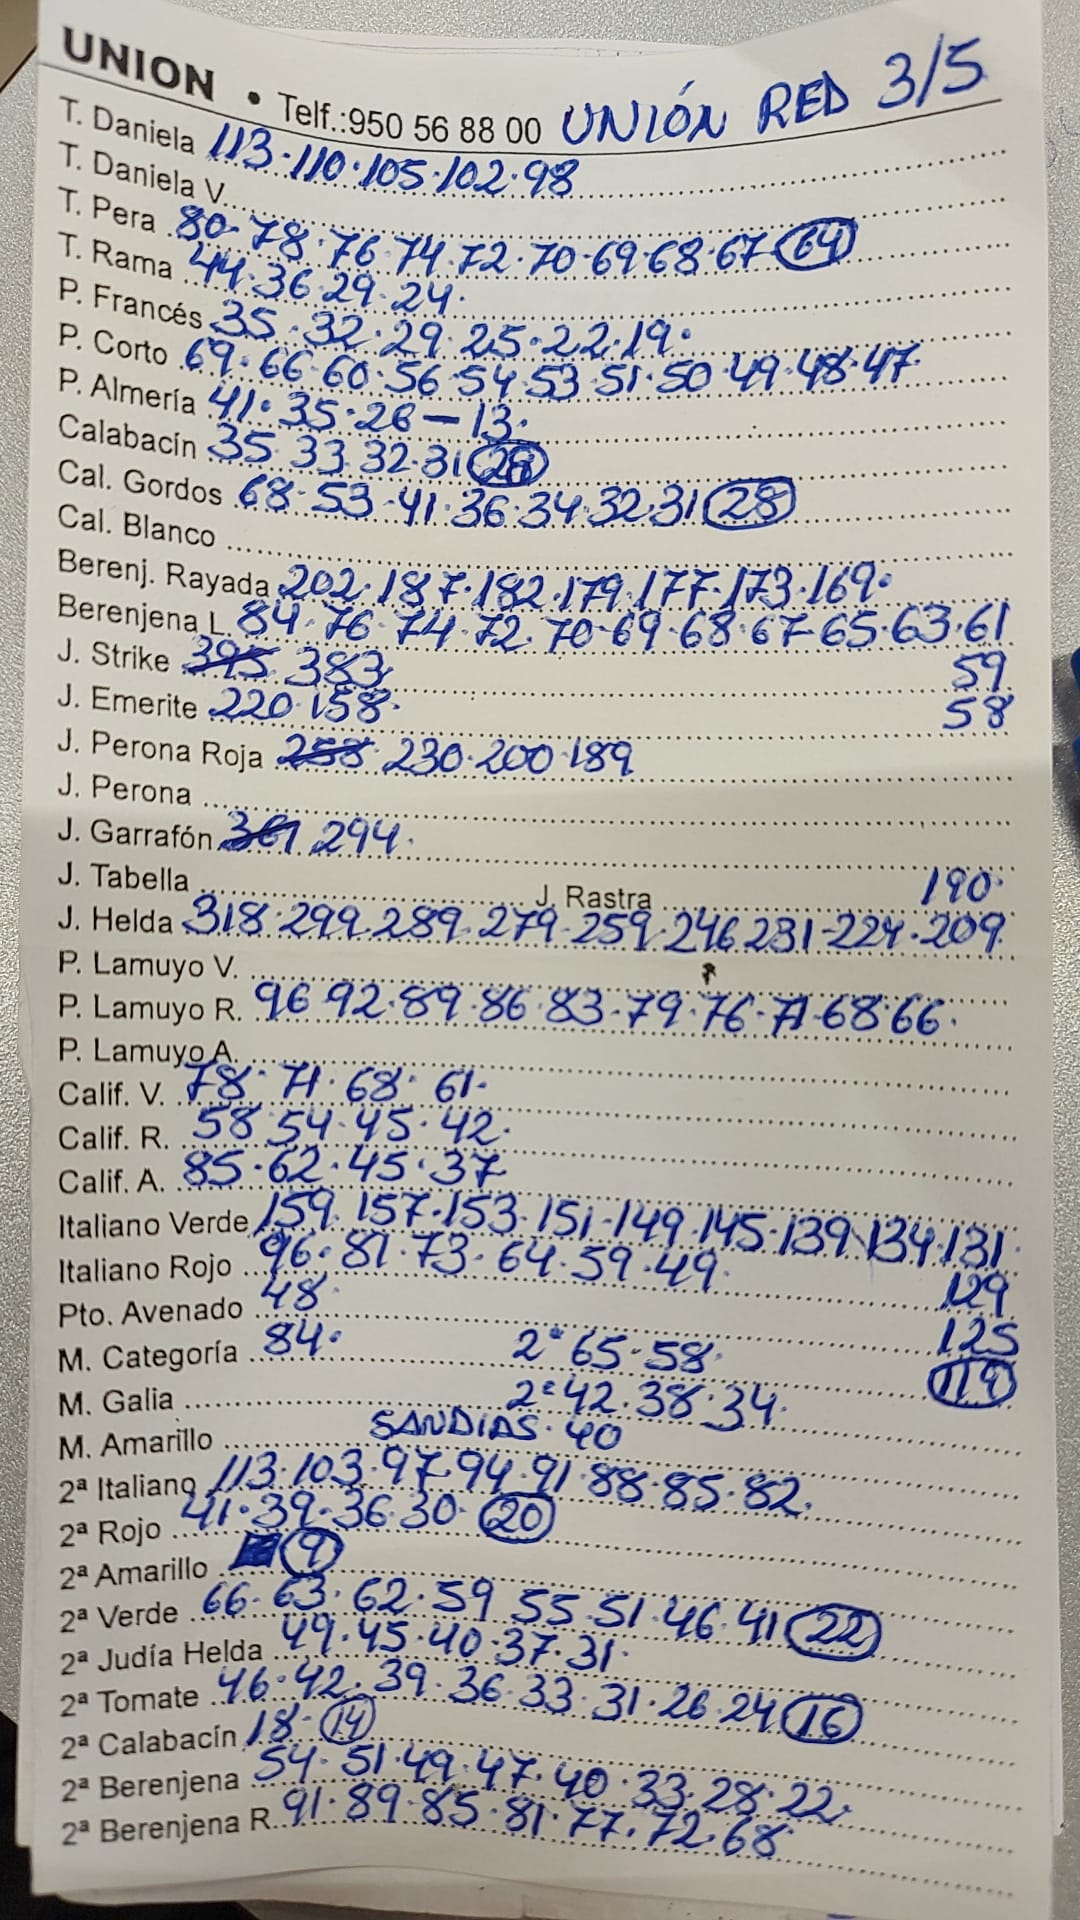 UNION • Telf.:950 56 88 00 UNIÓN RED 3/5
T. Daniela 113·110·105·102·98
T. Daniela V.
T. Pera 80·78·76·74·72·70·69·68·67 64
T. Rama 44·36·29·24·
P. Francés 35·32·29·25·22·19·
P. Corto 69·66·60·56·54·53·51·50·49·48·47
P. Almería 41·35·26–13·
Calabacín 35·33·32·31 28
Cal. Gordos 68·53·41·36·34·32·31 28
Cal. Blanco
Berenj. Rayada 202·187·182·179·177·173·169·
Berenjena L. 84·76·74·72·70·69·68·67·65·63·61
59
J. Strike 395 383
58
J. Emerite 220·158·
J. Perona Roja 258 230·200·189
J. Perona
J. Garrafón 294·
J. Tabella J. Rastra 190·
J. Helda 318·299·289·279·259·246 231·224·209
P. Lamuyo V.
P. Lamuyo R. 96 92·89·86·83·79·76·71·68·66·
P. Lamuyo A.
Calif. V. 78·71·68·61·
Calif. R. 58 54·45·42·
Calif. A. 85·62·45·37
Italiano Verde 159·157·153·151·149·145·139·134·131
Italiano Rojo 96·81·73·64·59·49·
129
Pto. Avenado 48·
125
M. Categoría 84· 2ª 65·58·
119
M. Galia 2ª 42·38·34·
M. Amarillo SANDIAS·40
2ª Italiano 113·103·97·94·91·88·85·82·
2ª Rojo 41·39·36·30· 20
2ª Amarillo 9
2ª Verde 66·63·62·59 55·51·46·41 22
2ª Judía Helda 49·45·40·37·31·
2ª Tomate 46·42·39·36·33·31·26·24 16
2ª Calabacín 18· 14
2ª Berenjena 54·51·49·47·40·33·28·22·
2ª Berenjena R. 91·89·85·81·77·72·68